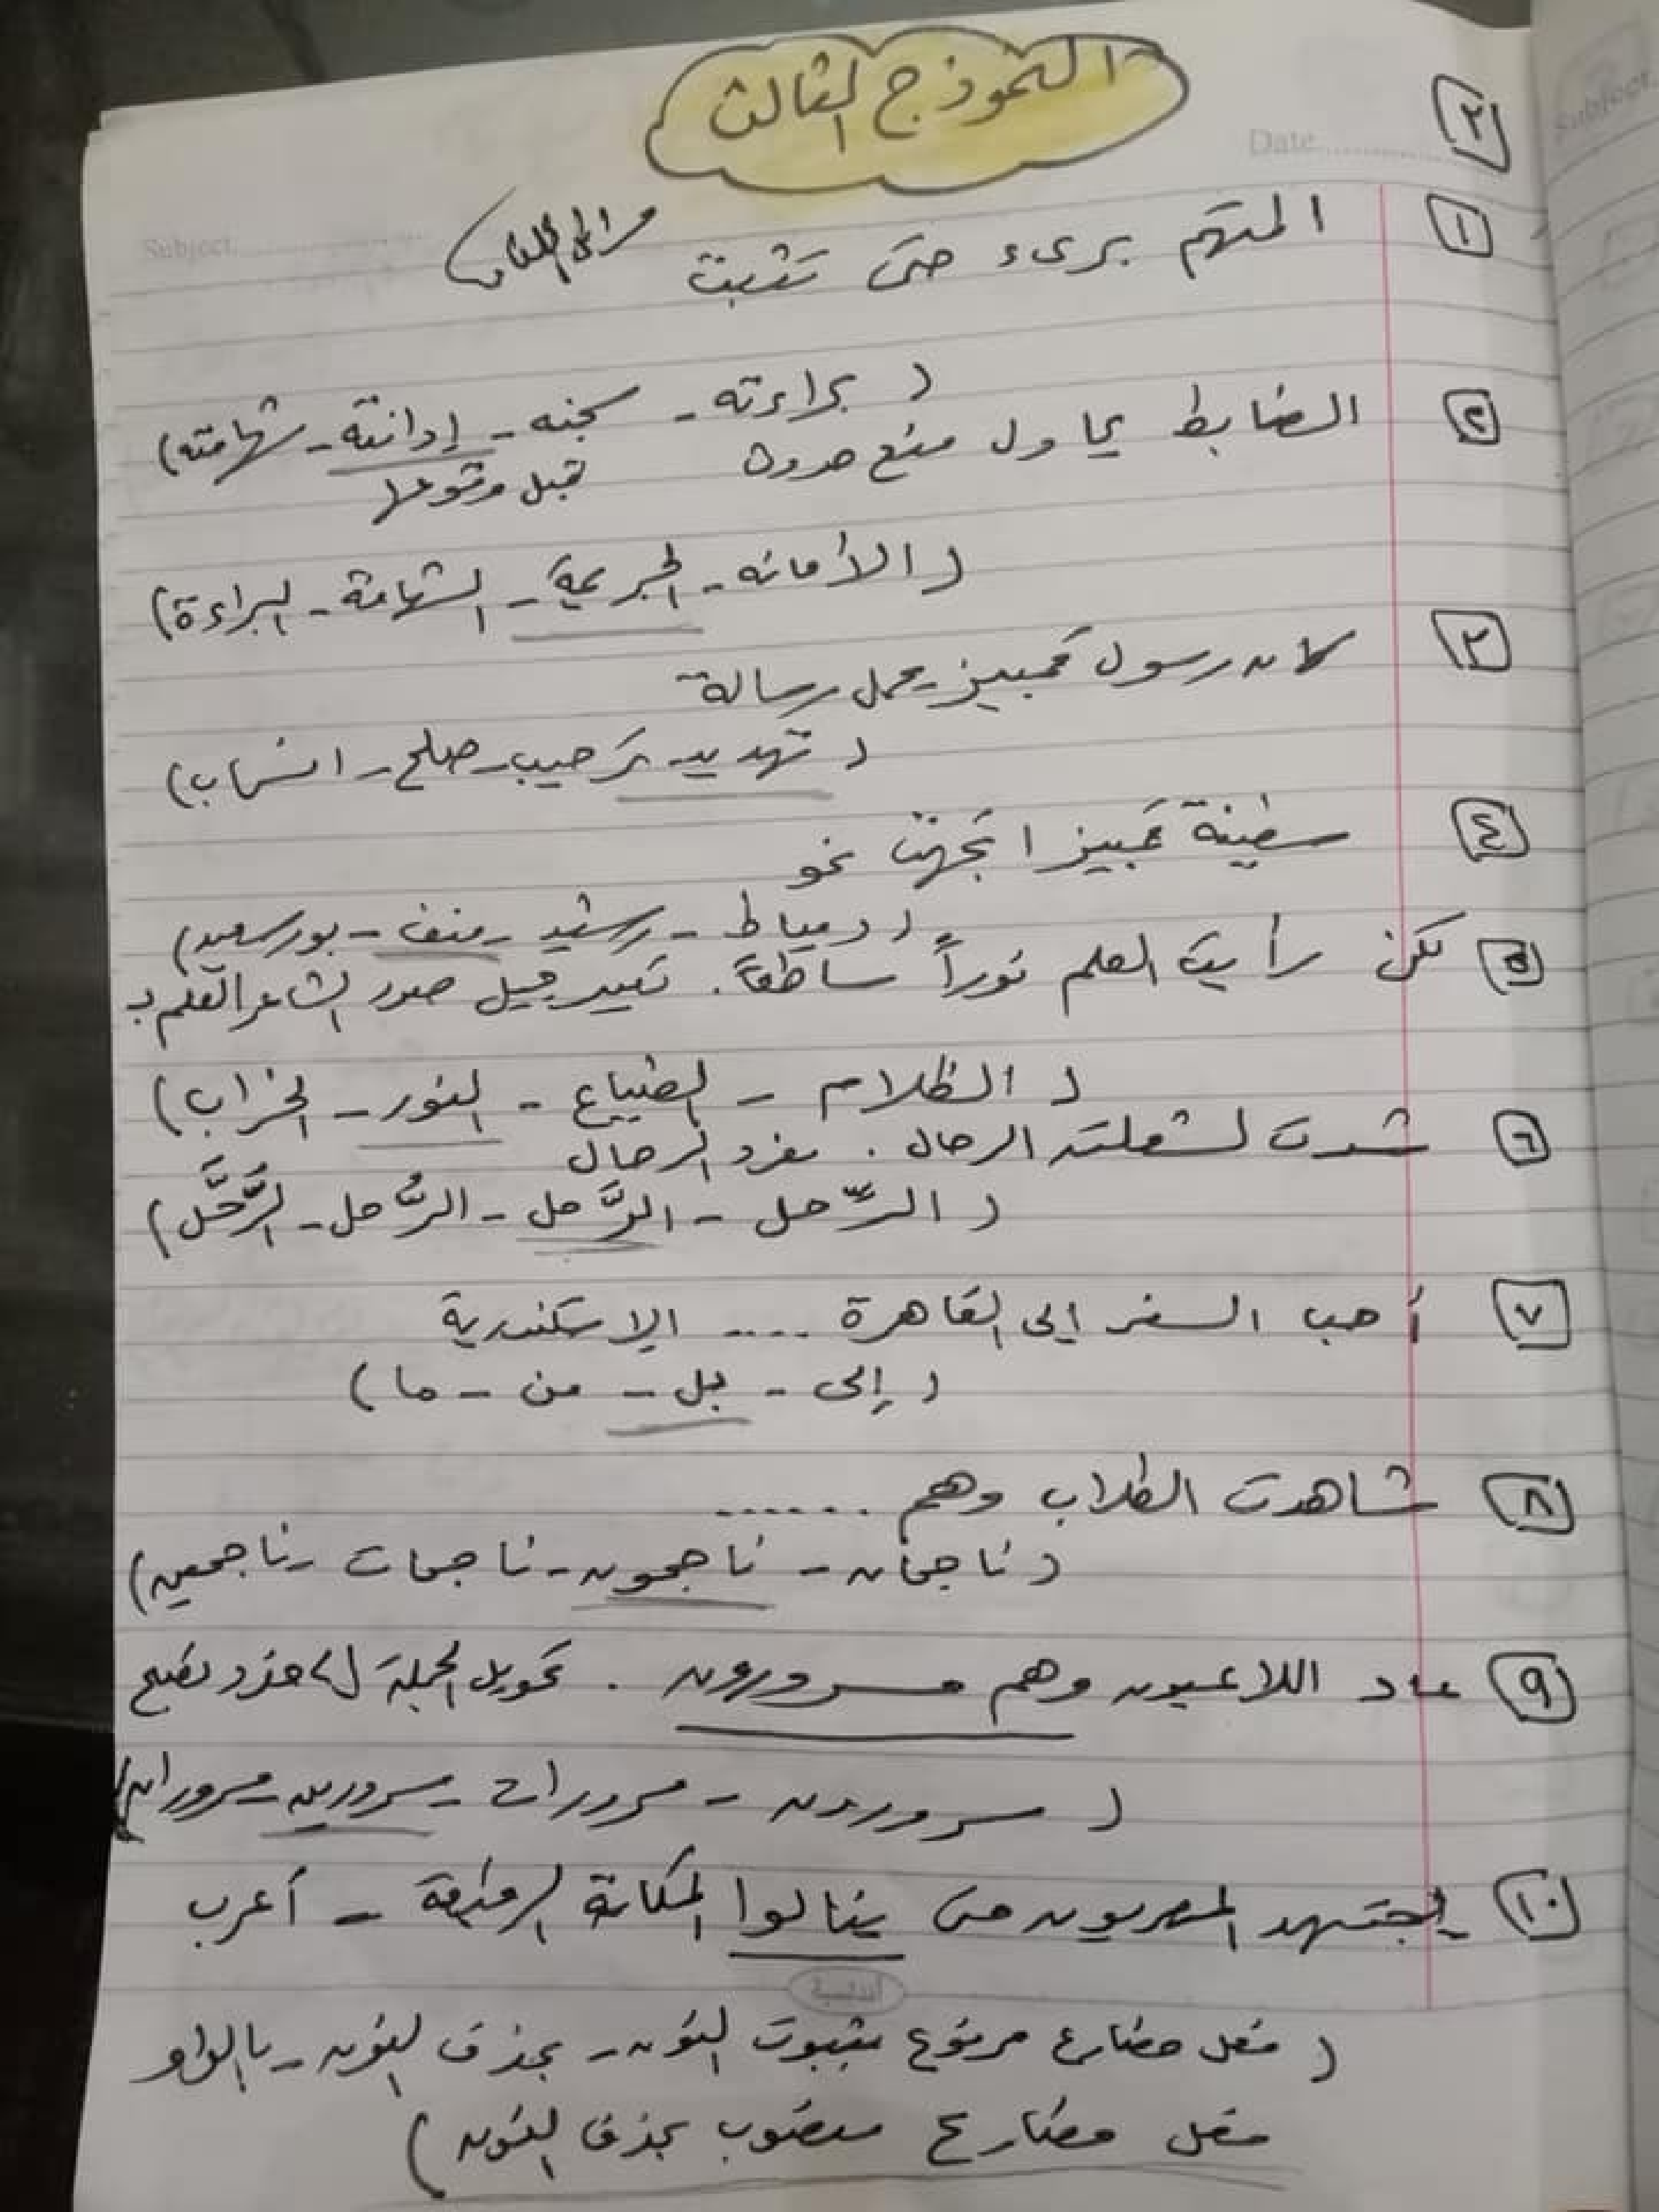 النموذج الثالث
٢
Date
Subject
Subject
١ المتهم برىء حتى تثبت
( براءته - سجنه - إدانته - شهامته)
٢ الضابط يحاول منع حدوث قبل وقوعها
( الأمانه - الجريمة - الشهامة - البراءة)
٣ كان رسول قمبيز يحمل رسالة
( تهديد - ترحيب - صلح - انسحاب)
٤ سفينة قمبيز اتجهت نحو
( دمياط - رشيد - منف - بورسعيد)
٥ لكن رأيت العلم نوراً ساطعاً. تعبير جميل صور الشاعر العلم بـ
( الظلام - الضياع - النور - الخراب)
٦ شدت لشعلته الرحال . مفرد الرحال
( الرِّحل - الرَّحل - الرُّحل - الرَّحَّل)
٧ أحب السفر إلى القاهرة .... الإسكندرية
( إلى - بل - من - ما)
٨ شاهدت الطلاب وهم ......
( ناجحان - ناجحون - ناجحات - ناجحين)
٩ عاد اللاعبون وهم مسرورون . تحويل الجملة لحال مفرد تصبح
( مسرورون - مسرورات - مسرورين - مسروران)
١٠ يجتهد المصريون حتى ينالوا المكانة الرفيعة - أعرب
أندلسية
( فعل مضارع مرفوع بثبوت النون - بحذف النون - بالواو
فعل مضارع منصوب بحذف النون )